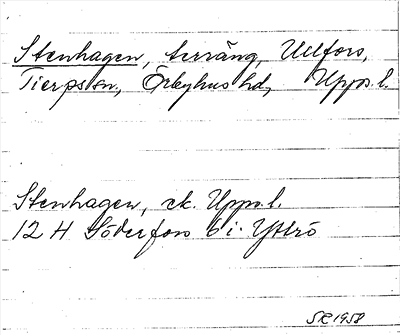 Stenhagen, terräng, Ullfors,
Tierps sn, Örbyhus hd, Upps. l.
Stenhagen, ek. Upps. l.
12 H Söderfors 6 i. Yttrö
SR 1958